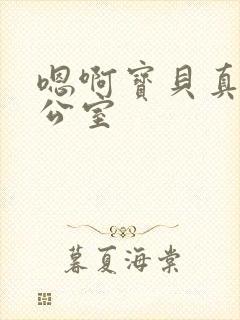 嗯啊宝贝真
公室
暮夏海棠